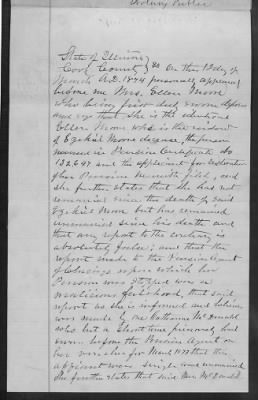 Notary Public
State of Illinois
Cook County } SS On this 13 day of
March A.D. 1874 personally appeared
before me Mrs. Ellen Moore
who being first duly sworn deposes
and says that she is the identical
Ellen Moore who is the widow
of Ezekiel Moore deceased, the person
named in Pension Certificate No
132,647 and the applicant for restoration
of her Pension herewith filed, and
she further states that she has not
remarried since the death of said
Ezekiel Moore but has remained
unmarried since his death and
that any report to the contrary is
absolutely false; and that the
report made to the Pension Agent
of Chicago upon which her
Pension was stopped was a
malicious falsehood, that said
report as she is informed and believes
was made by one Catharine McDonald
who but a short time previously had
sworn before the Pension Agent on
her voucher for March 1873 that this
applicant was single and unmarried
She further states that said Mrs McDonald